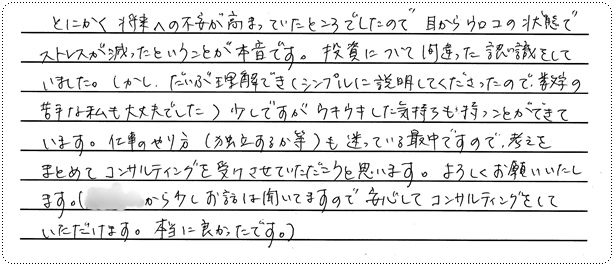 とにかく将来への不安が高まっていたところでしたので目からウロコの状態で
ストレスが減ったということが本音です。投資について間違った認識をして
いました。しかし、だいぶ理解でき(シンプルに説明してくださったので、数字の
苦手な私も大丈夫でした)少しですがウキウキした気持ちも持つことができて
います。仕事のやり方(独立するか等)も迷っている最中ですので、考えを
まとめてコンサルティングを受けさせていただこうと思います。よろしくお願いいたし
ます。(から少しお話は聞いてますので安心してコンサルティングをして
いただけます。本当に良かったです。)